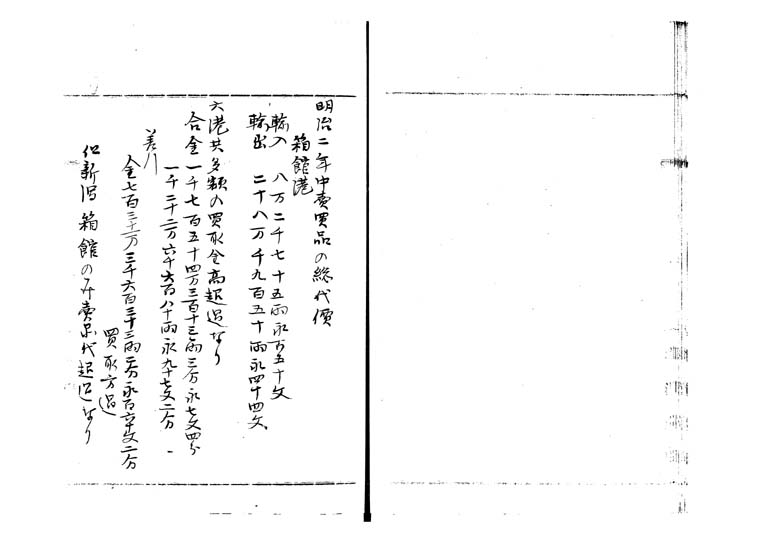 明治二年中賣買品の総代價
箱館港
輸入 八万二千七十五両永百五十文
輸出 二十八万千九百五十両永四十四文
六港共多額の買取金高超過なり
合金一千七百五十四万三百十三両三分永七文四分
一千二十二万六千六百八十両永九十七文二分
差引
金七百三十一万三千六百三十三両二分永百六十文二分
買取方過
但新潟箱館のみ賣品代超過なり